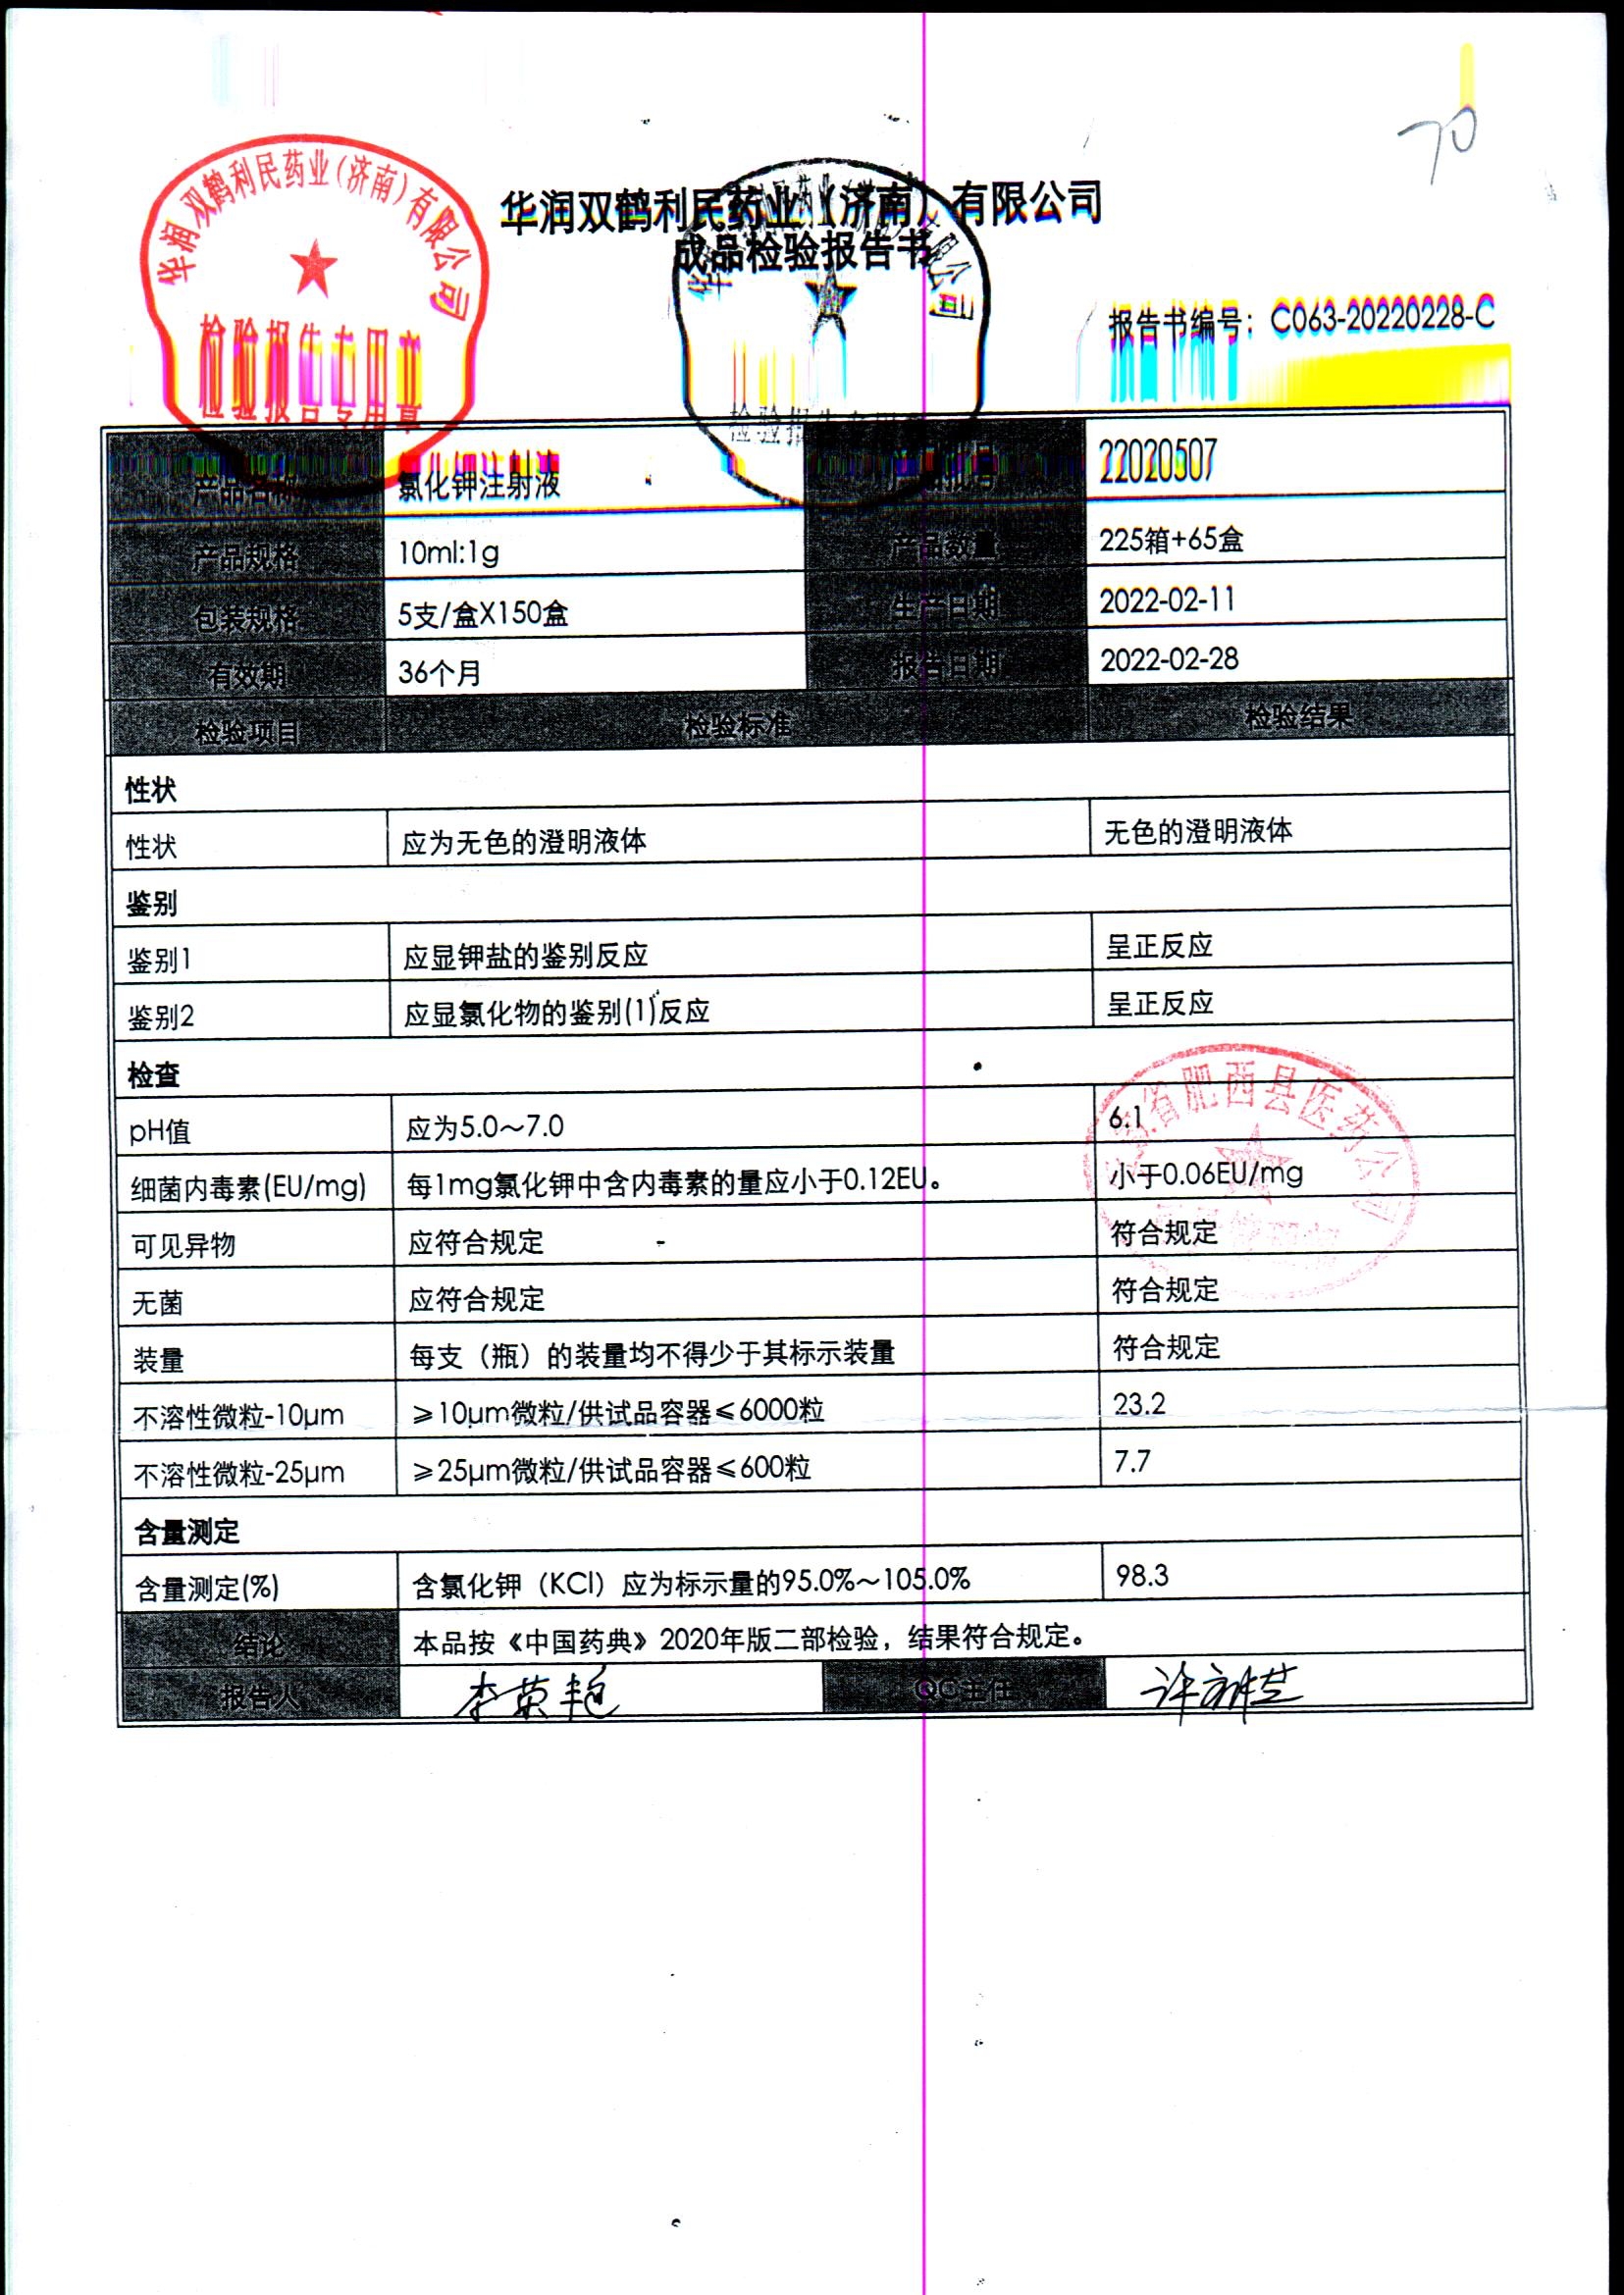 70
华润双鹤利民药业（济南）有限公司
检验报告专用章
华润双鹤利民药业（济南）有限公司
成品检验报告书
报告书编号：C063-20220228-C
产品名称 氯化钾注射液 产品批号 22020507
产品规格 10ml:1g 产品数量 225箱+65盒
包装规格 5支/盒X150盒 生产日期 2022-02-11
有效期 36个月 报告日期 2022-02-28
检验项目 检验标准 检验结果
性状
性状 应为无色的澄明液体 无色的澄明液体
鉴别
鉴别1 应显钾盐的鉴别反应 呈正反应
鉴别2 应显氯化物的鉴别(1)反应 呈正反应
检查
pH值 应为5.0～7.0 6.1
细菌内毒素(EU/mg) 每1mg氯化钾中含内毒素的量应小于0.12EU。 小于0.06EU/mg
可见异物 应符合规定 符合规定
无菌 应符合规定 符合规定
装量 每支（瓶）的装量均不得少于其标示装量 符合规定
不溶性微粒-10μm ≥10μm微粒/供试品容器≤6000粒 23.2
不溶性微粒-25μm ≥25μm微粒/供试品容器≤600粒 7.7
含量测定
含量测定(%) 含氯化钾（KCl）应为标示量的95.0%～105.0% 98.3
结论 本品按《中国药典》2020年版二部检验，结果符合规定。
报告人 李荣艳 QC主任
省肥西县医药公司